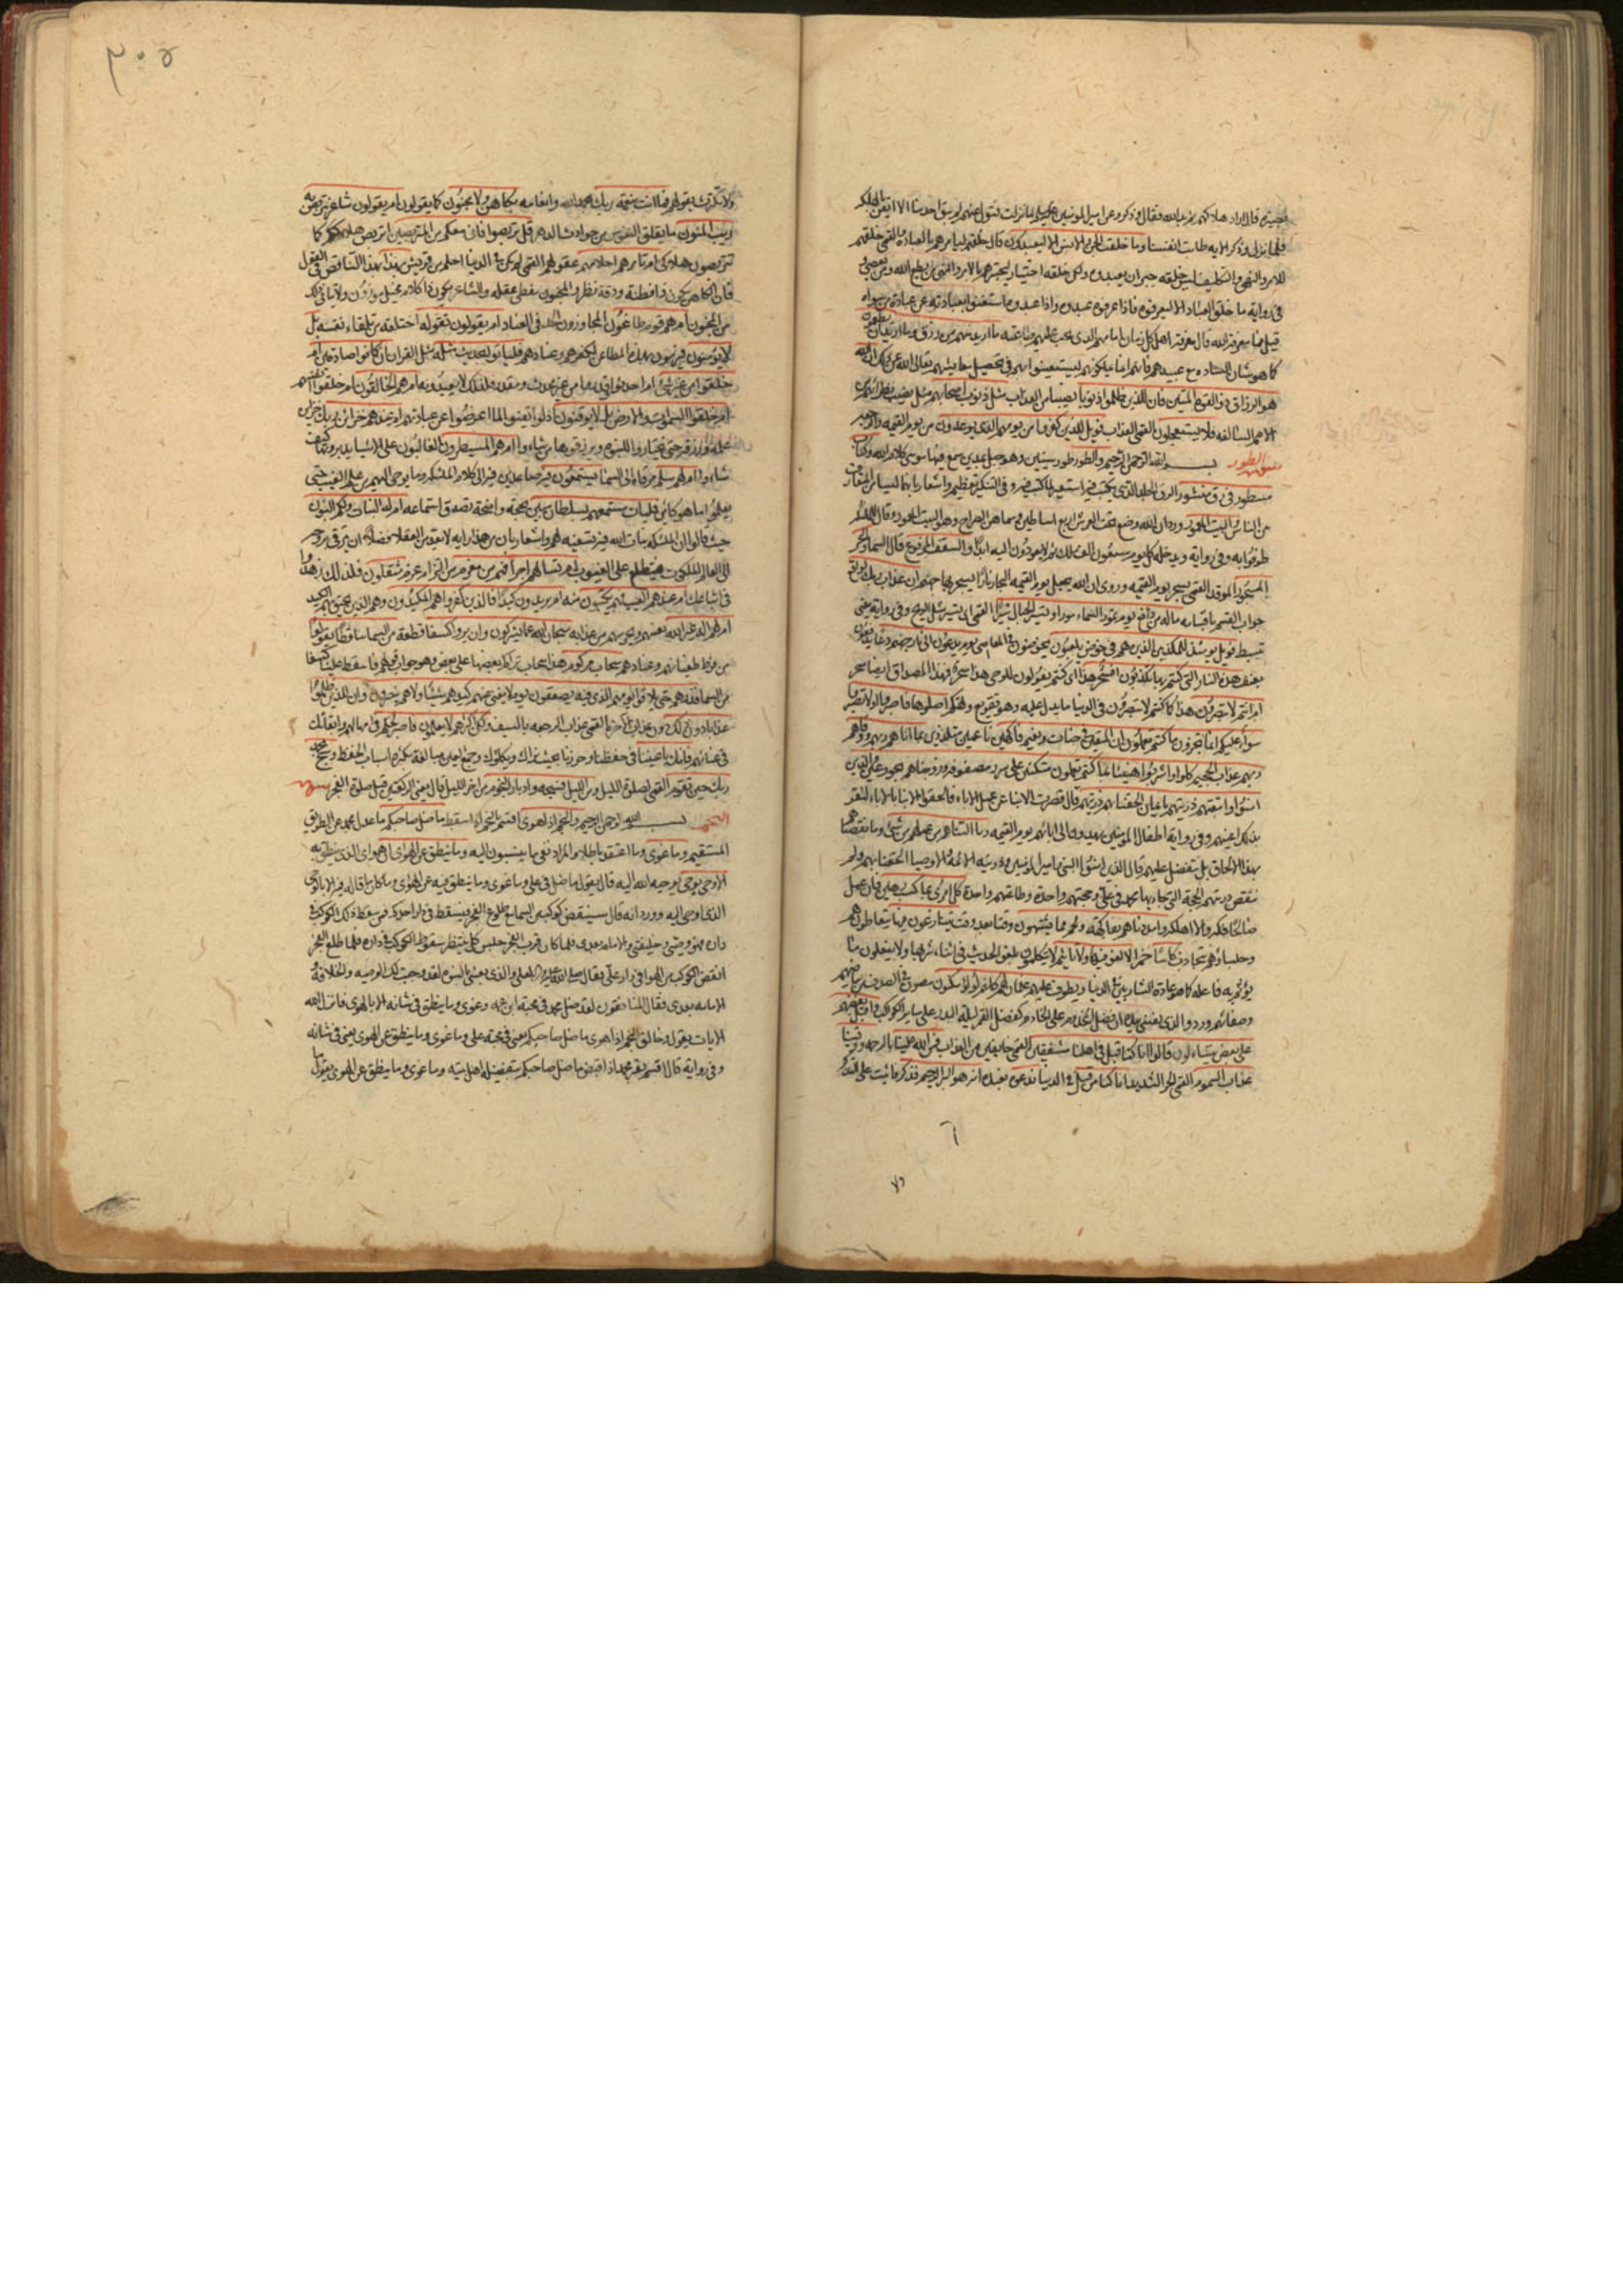 فلما نزل وذكر الآية طابت انفسنا وما خلقت الجن والانس الا ليعبدون قال خلقهم ليأمرهم بالعبادة القمي خلقهم
للامر والنهي والتكليف ليس خلقه جبر ان يعبدوه ولكن خلقه اختيار ليختبرهم بالامر والنهي ومن يطع الله ومن يعصي و
في رواية ما خلق العباد الا ليعرفوه فاذا عرفوه عبدوه واذا عبدوه استغنوا بعبادته عن عبادة من سواه
قيل فما معرفة الله قال معرفة اهل كل زمان امامهم الذي يجب عليهم طاعته ما اريد منهم من رزق وما اريد ان يطعمون
كما هو شان السادة مع عبيدهم فانهم انما يملكونهم ليستعينوا بهم في تحصيل معايشهم تعالى الله عن ذلك ان الله
هو الرزاق ذو القوة المتين فان للذين ظلموا ذنوبا نصيبا من العذاب مثل ذنوب اصحابهم مثل نصيب نظرائهم من
الامم السالفة فلا يستعجلون القمي العذاب فويل للذين كفروا من يومهم الذي يوعدون من يوم القيمة
سورة الطور بسم الله الرحمن الرحيم والطور طور سينين وهو جبل بمدين سمع فيه موسى كلام الله وكتاب
مسطور في رق منشور الرق الجلد الذي يكتب فيه استعير لما كتب فيه وفي التنكير تعظيم واشعار بانهما ليسا من المتعارف
من الناس والبيت المعمور ورد ان الله وضع تحت العرش اربع اساطين وسماهن الضراح وهو البيت المعمور وقال للملائكة
طوفوا به وفي رواية ويدخله كل يوم سبعون الف ملك ثم لا يعودون اليه ابدا والسقف المرفوع قال السماء والبحر
المسجور الموقد القمي يسجر يوم القيمة وروي ان الله يجعل يوم القيمة البحار نارا يسجر بها جهنم ان عذاب ربك لواقع
جواب القسم ما له من دافع يوم تمور السماء مورا وتسير الجبال سيرا القمي اي تسير مثل الريح وفي رواية يعني
تبسط فويل يومئذ للمكذبين الذين هم في خوض يلعبون يخوضون في المعاصي يوم يدعون الى نار جهنم دعا يدفعون
بعنف هذه النار التي كنتم بها تكذبون افسحر هذا اي كنتم تقولون للوحي هذا سحر فهذا المصداق ايضا سحر
ام انتم لا تبصرون هذا كما كنتم لا تبصرون في الدنيا ما يدل عليه وهو تقريع وتهكم اصلوها فاصبروا او لا تصبروا
سواء عليكم انما تجزون ما كنتم تعملون ان المتقين في جنات ونعيم فاكهين ناعمين متلذذين بما اتاهم ربهم ووقاهم
ربهم عذاب الجحيم كلوا واشربوا هنيئا بما كنتم تعملون متكئين على سرر مصفوفة وزوجناهم بحور عين والذين
امنوا واتبعتهم ذريتهم بايمان الحقنا بهم ذريتهم قال قصرت الابناء عن عمل الاباء فالحقوا الابناء بالاباء لتقر
بذلك اعينهم وفي رواية اطفال المؤمنين يهدون الى ابائهم يوم القيمة وما التناهم من عملهم من شيء وما نقصناهم
بهذا الالحاق بل نتفضل عليهم قال الذين امنوا النبي وامير المؤمنين وذريته الائمة الاوصياء الحقنا بهم ولم
ننقص ذريتهم الحجة التي جاء بها محمد في علي وحجتهم واحدة وطاعتهم واحدة كل امرئ بما كسب رهين فان عمل
صالحا فكه والا اهلكه وامددناهم بفاكهة ولحم مما يشتهون وقتا بعد وقت يتنازعون فيها يتعاطون هم
وجلساؤهم بتجاذب كاسا خمرا لا لغو فيها ولا تاثيم لا يتكلمون بلغو الحديث في اثناء شربها ولا يفعلون ما
يؤثم به فاعله كما هو عادة الشاربين في الدنيا ويطوف عليهم غلمان لهم كانهم لؤلؤ مكنون مصون في الصدف من بياضهم
وصفائهم ورد والذي نفسي بيده ان فضل المخدوم على الخادم كفضل القمر ليلة البدر على سائر الكواكب واقبل بعضهم
على بعض يتساءلون قالوا انا كنا قبل في اهلنا مشفقين القمي خائفين من العذاب فمن الله علينا بالرحمة ووقينا
عذاب السموم القمي الحر الشديد انا كنا من قبل في الدنيا ندعوه نعبده انه هو البر الرحيم فذكر فاثبت على التذكير
ولا
٣٠٤
ولا تكترث بقولهم فما انت بنعمة ربك بحمد الله وانعامه بكاهن ولا مجنون كما يقولون ام يقولون شاعر نتربص به
ريب المنون ما يقلق النفوس من حوادث الدهر قل تربصوا فاني معكم من المتربصين اتربص هلاككم كما
تتربصون هلاكي ام تامرهم احلامهم عقولهم القمي لم يكن في الدنيا احلم من قريش بهذا بهذا التناقض في القول
فان الكاهن يكون ذا فطنة ودقة نظر والمجنون مغطى عقله والشاعر يكون ذا كلام مخيل موزون ولا يتاتى ذلك
من المجنون ام هم قوم طاغون المجاوزون الحد في العناد ام يقولون تقوله اختلقه من تلقاء نفسه بل
لا يؤمنون فيرمون بهذه المطاعن لكفرهم وعنادهم فلياتوا بحديث مثله مثل القران ان كانوا صادقين ام
خلقوا من غير شيء ام احدثوا وقدروا من غير محدث ومقدر فلذلك لا يعبدونه ام هم الخالقون ام خلقوا انفسهم
ام خلقوا السموات والارض بل لا يوقنون اذ لو ايقنوا لما اعرضوا عن عبادته ام عندهم خزائن ربك خزاين
علمه ورزقه حتى يختاروا للنبوة ويرزقوها من شاءوا ام هم المسيطرون الغالبون على الاشياء يدبرونها كيف
شاءوا ام لهم سلم مرقاة الى السماء يستمعون فيه صاعدين فيه الى كلام الملائكة وما يوحى اليهم من علم الغيب حتى
يعلموا ما هو كائن فليات مستمعهم بسلطان مبين بحجة واضحة تصدق استماعه ام له البنات ولكم البنون
حيث قالوا ان الملائكة بنات الله فيه تسفيه لهم واشعار بان من هذا رايه لا يعد من العقلاء فضلا ان يترقى بروحه
الى عالم الملكوت فيتطلع على الغيوب ام تسالهم اجرا فهم من مغرم من التزام غرم مثقلون فلذلك زهدوا
في اتباعك ام عندهم الغيب فهم يكتبون منه ام يريدون كيدا فالذين كفروا هم المكيدون وهم الذين يحيق بهم الكيد
ام لهم اله غير الله يعينهم ويحرسهم من عذابه سبحان الله عما يشركون وان يروا كسفا قطعة من السماء ساقطا يقولوا
من فرط طغيانهم وعنادهم سحاب مركوم هذا سحاب تراكم بعضها على بعض وهو جواب قولهم فاسقط علينا كسفا
من السماء فذرهم حتى يلاقوا يومهم الذي فيه يصعقون يوم لا يغني عنهم كيدهم شيئا ولا هم ينصرون وان للذين ظلموا
عذابا دون ذلك دون عذاب الاخرة القمي عذاب الرجعة بالسيف ولكن اكثرهم لا يعلمون واصبر لحكم ربك بامهالهم وابقائك
في عنائهم فانك باعيننا في حفظنا وحرزنا بحيث نراك ونكلؤك وجمع العين مبالغة بكثرة اسباب الحفظ وسبح بحمد
ربك حين تقوم القمي لصلوة الليل ومن الليل فسبحه وادبار النجوم من اخر الليل قال يعني الركعتين قبل صلوة الفجر سورة
النجم بسم الله الرحمن الرحيم والنجم اذا هوى اقسم بالنجم اذا سقط ما ضل صاحبكم ما عدل محمد عن الطريق
المستقيم وما غوى وما اعتقد باطلا والمراد نفي ما ينسبون اليه وما ينطق عن الهوى ان هو اي الذي ينطق به
الا وحي يوحى يوحيه الله اليه قال يقول ما ضل في علي وما غوى وما ينطق فيه عن الهوى وما كان ما قاله فيه الا بالوحي
الذي اوحي اليه وورد انه قال سينقض كوكب من السماء مع طلوع الفجر فيسقط في دار احدكم فمن سقط ذلك الكوكب في
داره فهو وصيي وخليفتي والامام بعدي فلما كان قرب الفجر جلس كل ينتظر سقوط الكوكب في داره فلما طلع الفجر
انقض الكوكب من الهواء في دار علي فقال صلى الله عليه واله لعلي والذي بعثني بالنبوة لقد وجبت لك الوصية والخلافة و
الامامة بعدي فقال المنافقون لقد ضل محمد في محبة ابن عمه وغوى وما ينطق في شانه الا بالهوى فانزل الله
الايات يقول وخالق النجم اذا هوى ما ضل صاحبكم يعني في محبة علي وما غوى وما ينطق عن الهوى يعني في شانه
وفي رواية قال اقسم بقبر محمد اذا قبض ما ضل صاحبكم بتفضيله اهل بيته وما غوى وما ينطق عن الهوى يقول ما